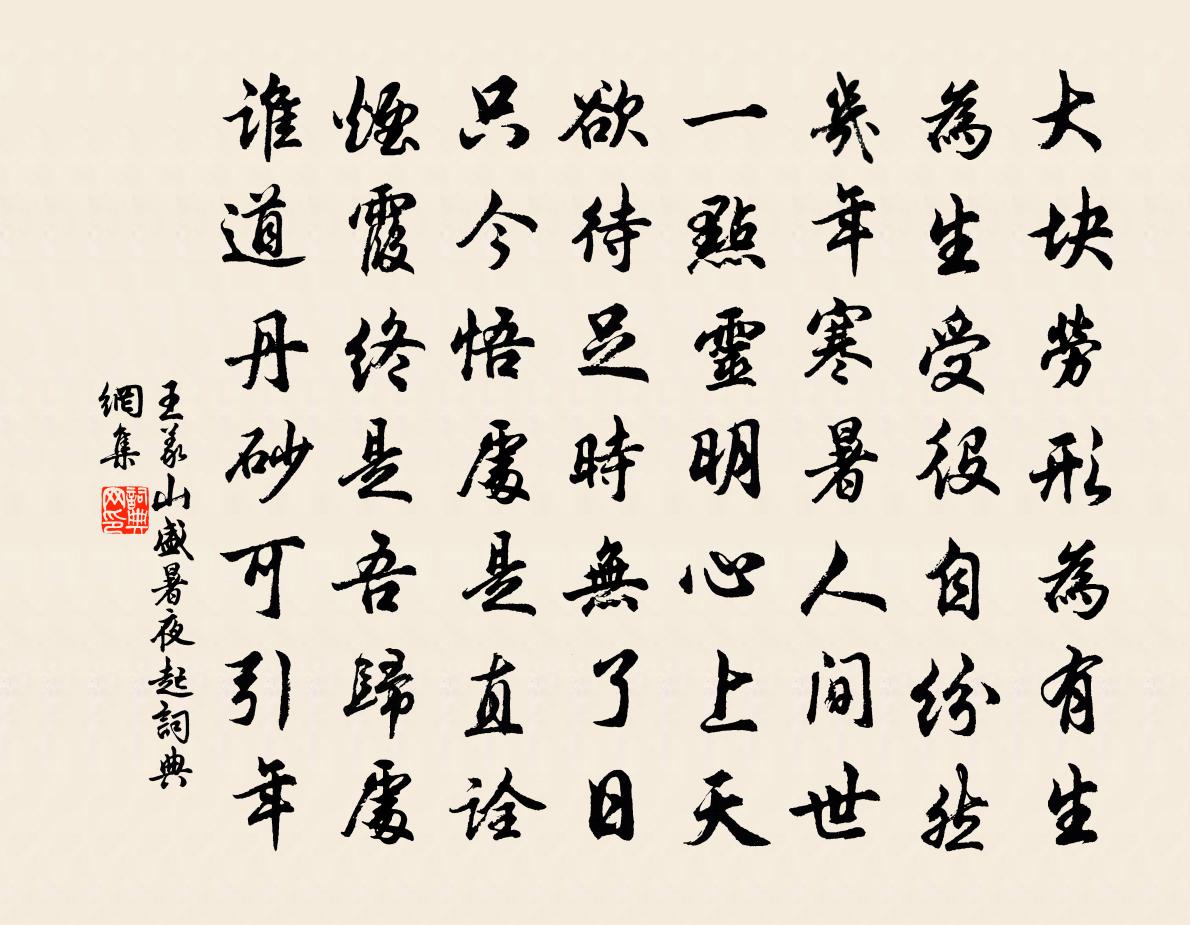 大块勞形為有生
為生受役自紛然
幾年寒暑人間世
一點靈明心上天
欲待足時無了日
只今悟處是真詮
煙霞終是吾歸處
誰道丹砂可引年
王義山盛暑夜起詞典
網集
詞典
网印